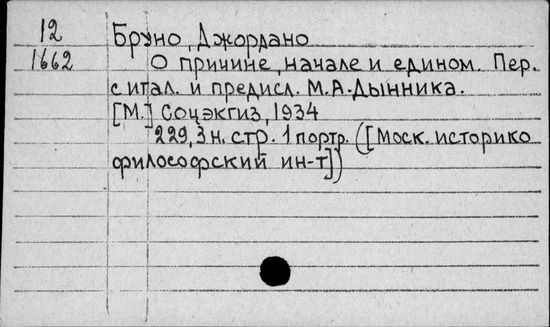 12
1662
Бруно, Джордано
О причине, начале и едином. Пер.
с итал. и предисл. М.А.Дынника.
[М.] Соцэкгиз, 1934
229, 3 н. стр. 1 портр. ([Моск. историко
философский ин-т])